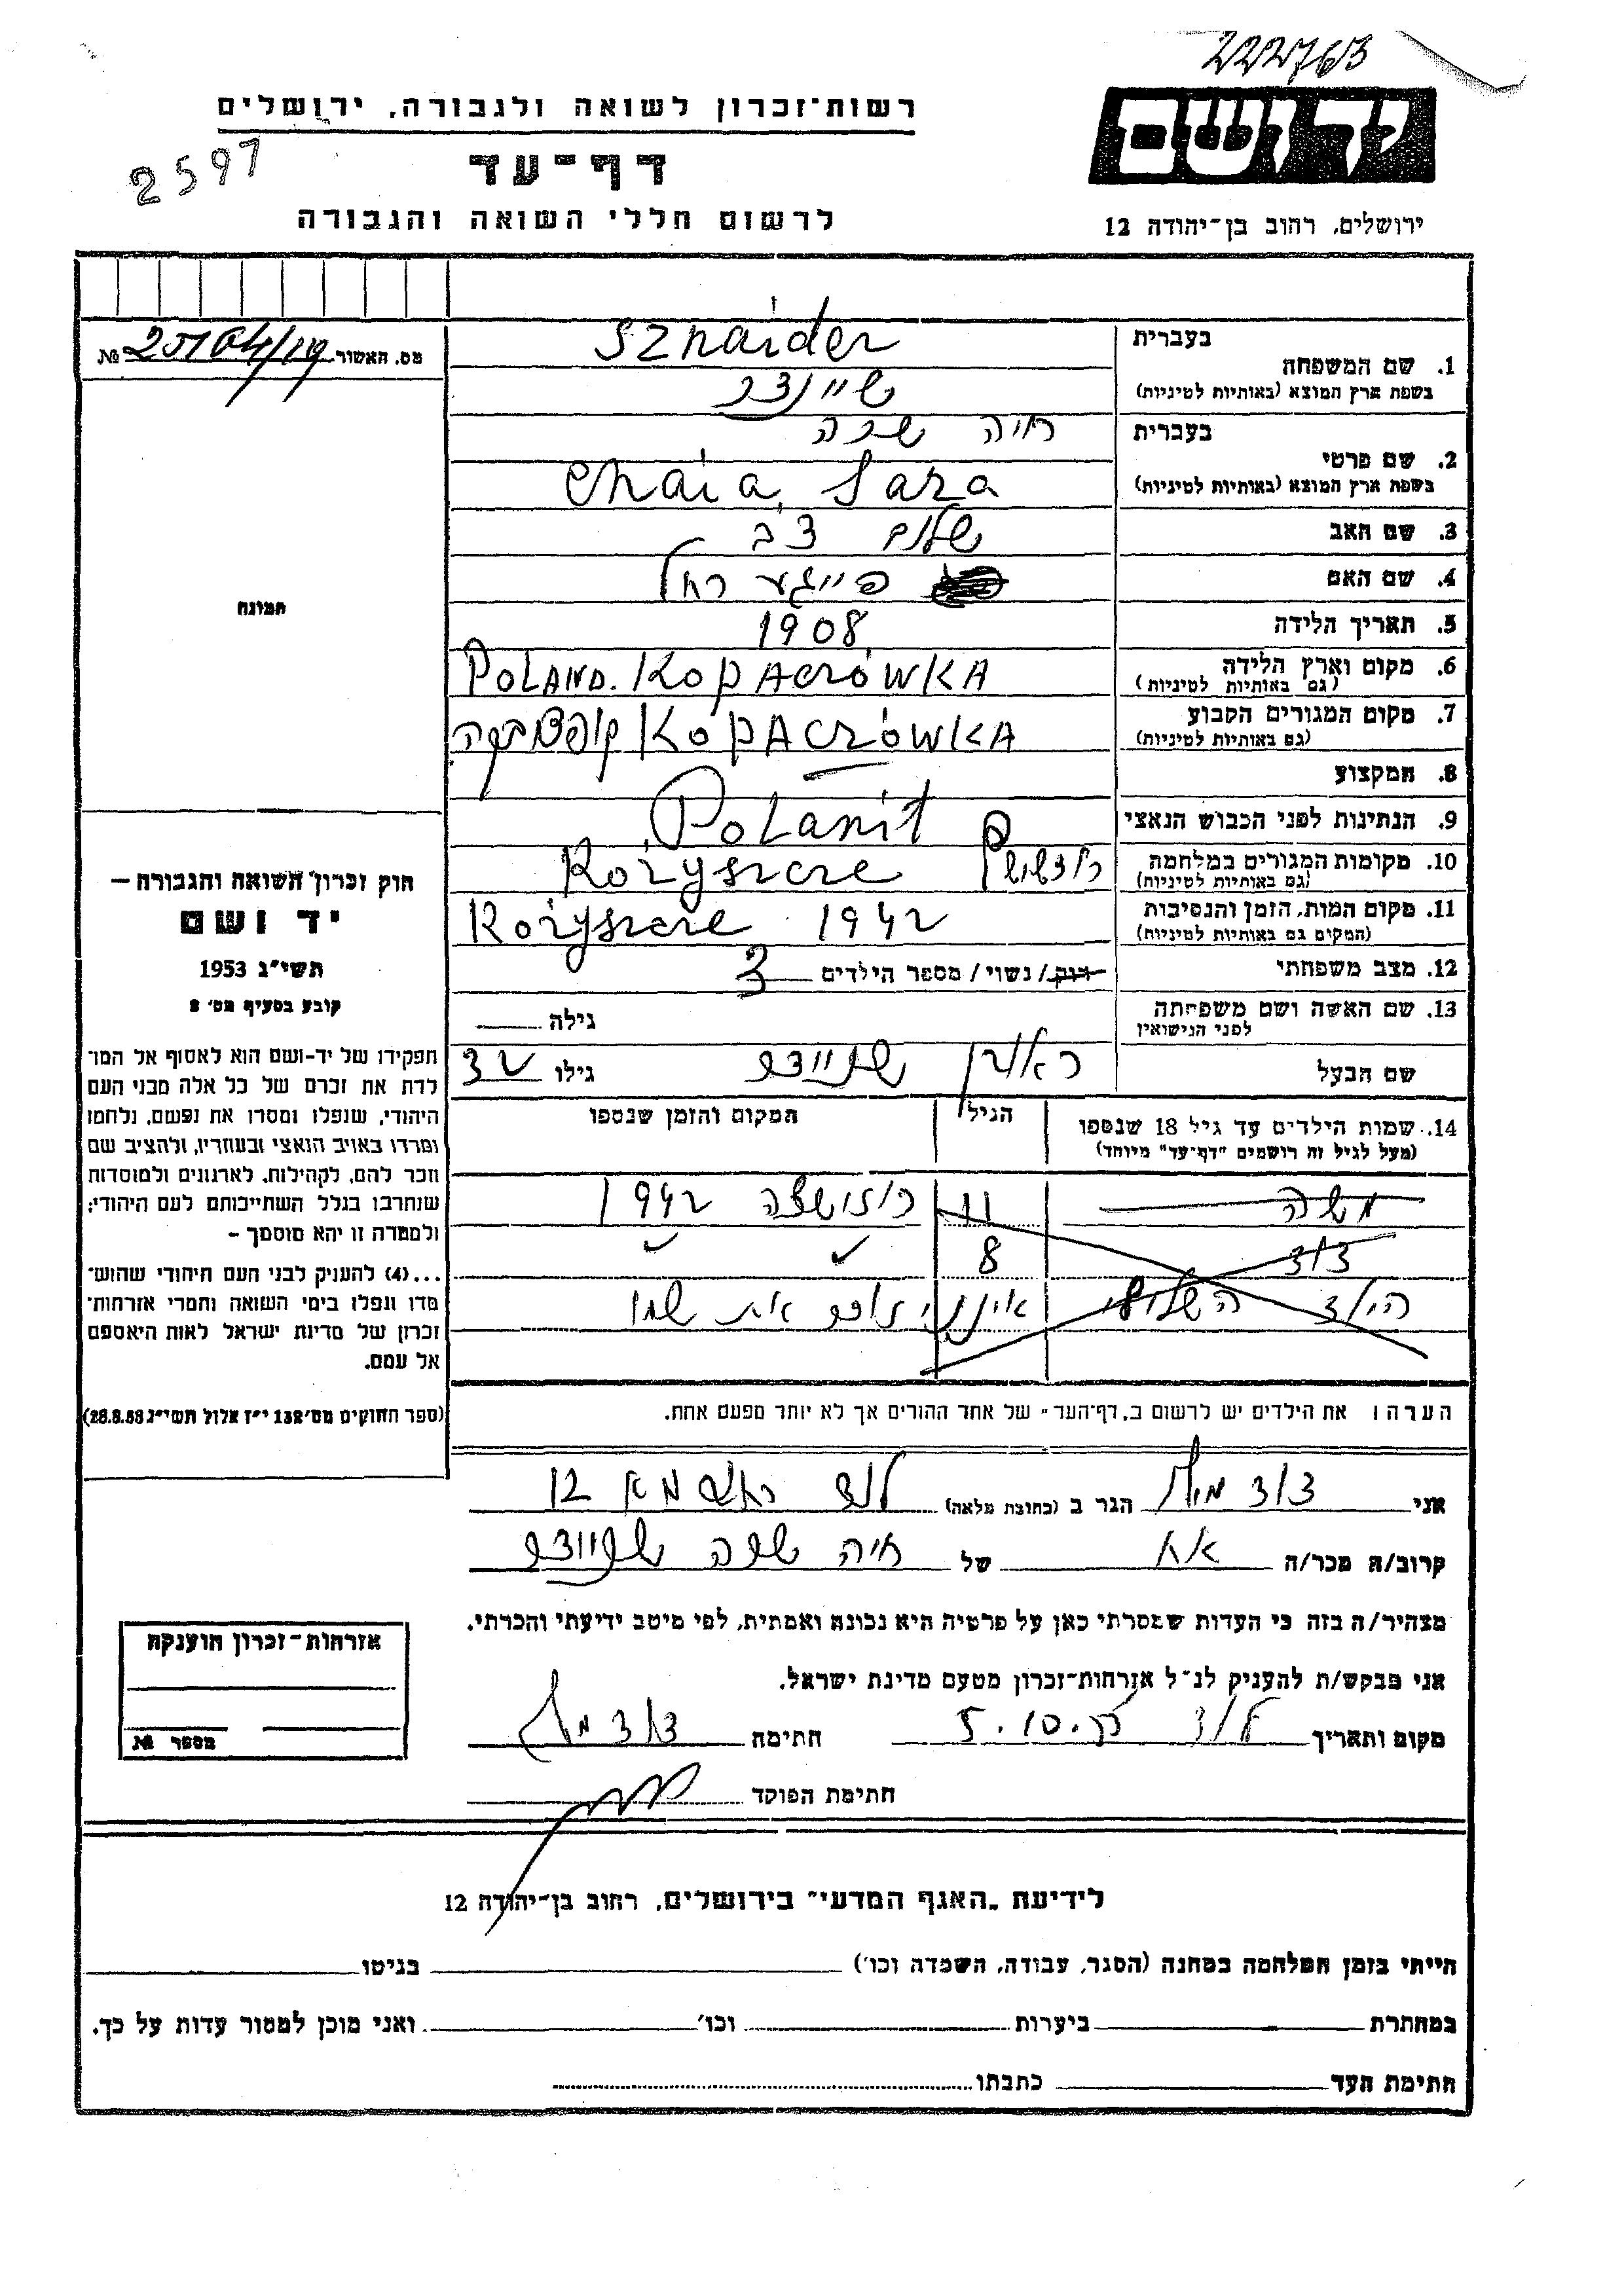 222763
רשות־זכרון לשואה ולגבורה, ירושלים
יד ושם
2597
דף־עד
לרשום חללי השואה והגבורה
ירושלים, רחוב בן־יהודה 12
מס. האשור №
בעברית
Sznaider
1. שם המשפחה
(בשפת ארץ המוצא (באותיות לטיניות
בעברית
חיה שרה
2. שם פרטי
(בשפת ארץ המוצא (באותיות לטיניות
Chaia, Sara
3. שם האב
שלום צבי
4. שם האם
פייגע רחל
5. תאריך הלידה
1908
6. מקום וארץ הלידה
(גם באותיות לטיניות)
POLAND. KOPACZÓWKA
7. מקום המגורים הקבוע
(גם באותיות לטיניות)
KOPACZÓWKA
8. המקצוע
9. הנתינות לפני הכבוש הנאצי
Polanit
10. מקומות המגורים במלחמה
(גם באותיות לטיניות)
Rożyszcze
11. מקום המות, הזמן והנסיבות
(המקום גם באותיות לטיניות)
Rożyszcze 1942
12. מצב משפחתי
רווק / נשוי / מספר הילדים 3
13. שם האשה ושם משפחתה
לפני הנישואין
גילה
שם הבעל
ראובן שניידר
גילו
14. שמות הילדים עד גיל 18 שנספו
(מעל לגיל זה רושמים "דף־עד" מיוחד)
הגיל
המקום והזמן שנספו
משה 11 רוזישצה 1942
דוד 8
הילד השלישי אינני זוכר את שמו
הערה: את הילדים יש לרשום ב„דף־העד" של אחד ההורים אך לא יותר מפעם אחת.
תמונה
חוק זכרון השואה והגבורה —
יד ושם
תשי״ג 1953
קובע בסעיף מס׳ 2
תפקידו של יד־ושם הוא לאסוף אל המו־
לדת את זכרם של כל אלה מבני העם
היהודי, שנפלו ומסרו את נפשם, נלחמו
ומרדו באויב הנאצי ובעוזריו, ולהציב שם
וזכר להם, לקהילות, לארגונים ולמוסדות
שנחרבו בגלל השתייכותם לעם היהודי;
ולמטרה זו יהא מוסמך —
...(4) להעניק לבני העם היהודי שהוש־
מדו ונפלו בימי השואה והמרי אזרחות־
זכרון של מדינת ישראל לאות היאספם
אל עמם.
(ספר החוקים מס׳ 132 י״ז אלול תשי״ג 28.8.53)
אני דוד הגר ב (כתובת מלאה) 12
קרוב/ה מכר/ה אח של חיה שרה שניידר
מצהיר/ה בזה כי העדות שמסרתי כאן על פרטיה היא נכונה ואמתית, לפי מיטב ידיעתי והכרתי.
אני מבקש/ת להעניק לנ״ל אזרחות־זכרון מטעם מדינת ישראל.
מקום ותאריך לוד 5.10. חתימה דוד
חתימת הפוקד
אזרחות־זכרון הוענקה
מספר №
לידיעת „האגף המדעי" בירושלים, רחוב בן־יהודה 12
הייתי בזמן המלחמה במחנה (הסגר, עבודה, השמדה וכו׳) בגיטו
במחתרת ביערות וכו׳ ואני מוכן למסור עדות על כך.
חתימת העד כתבתו